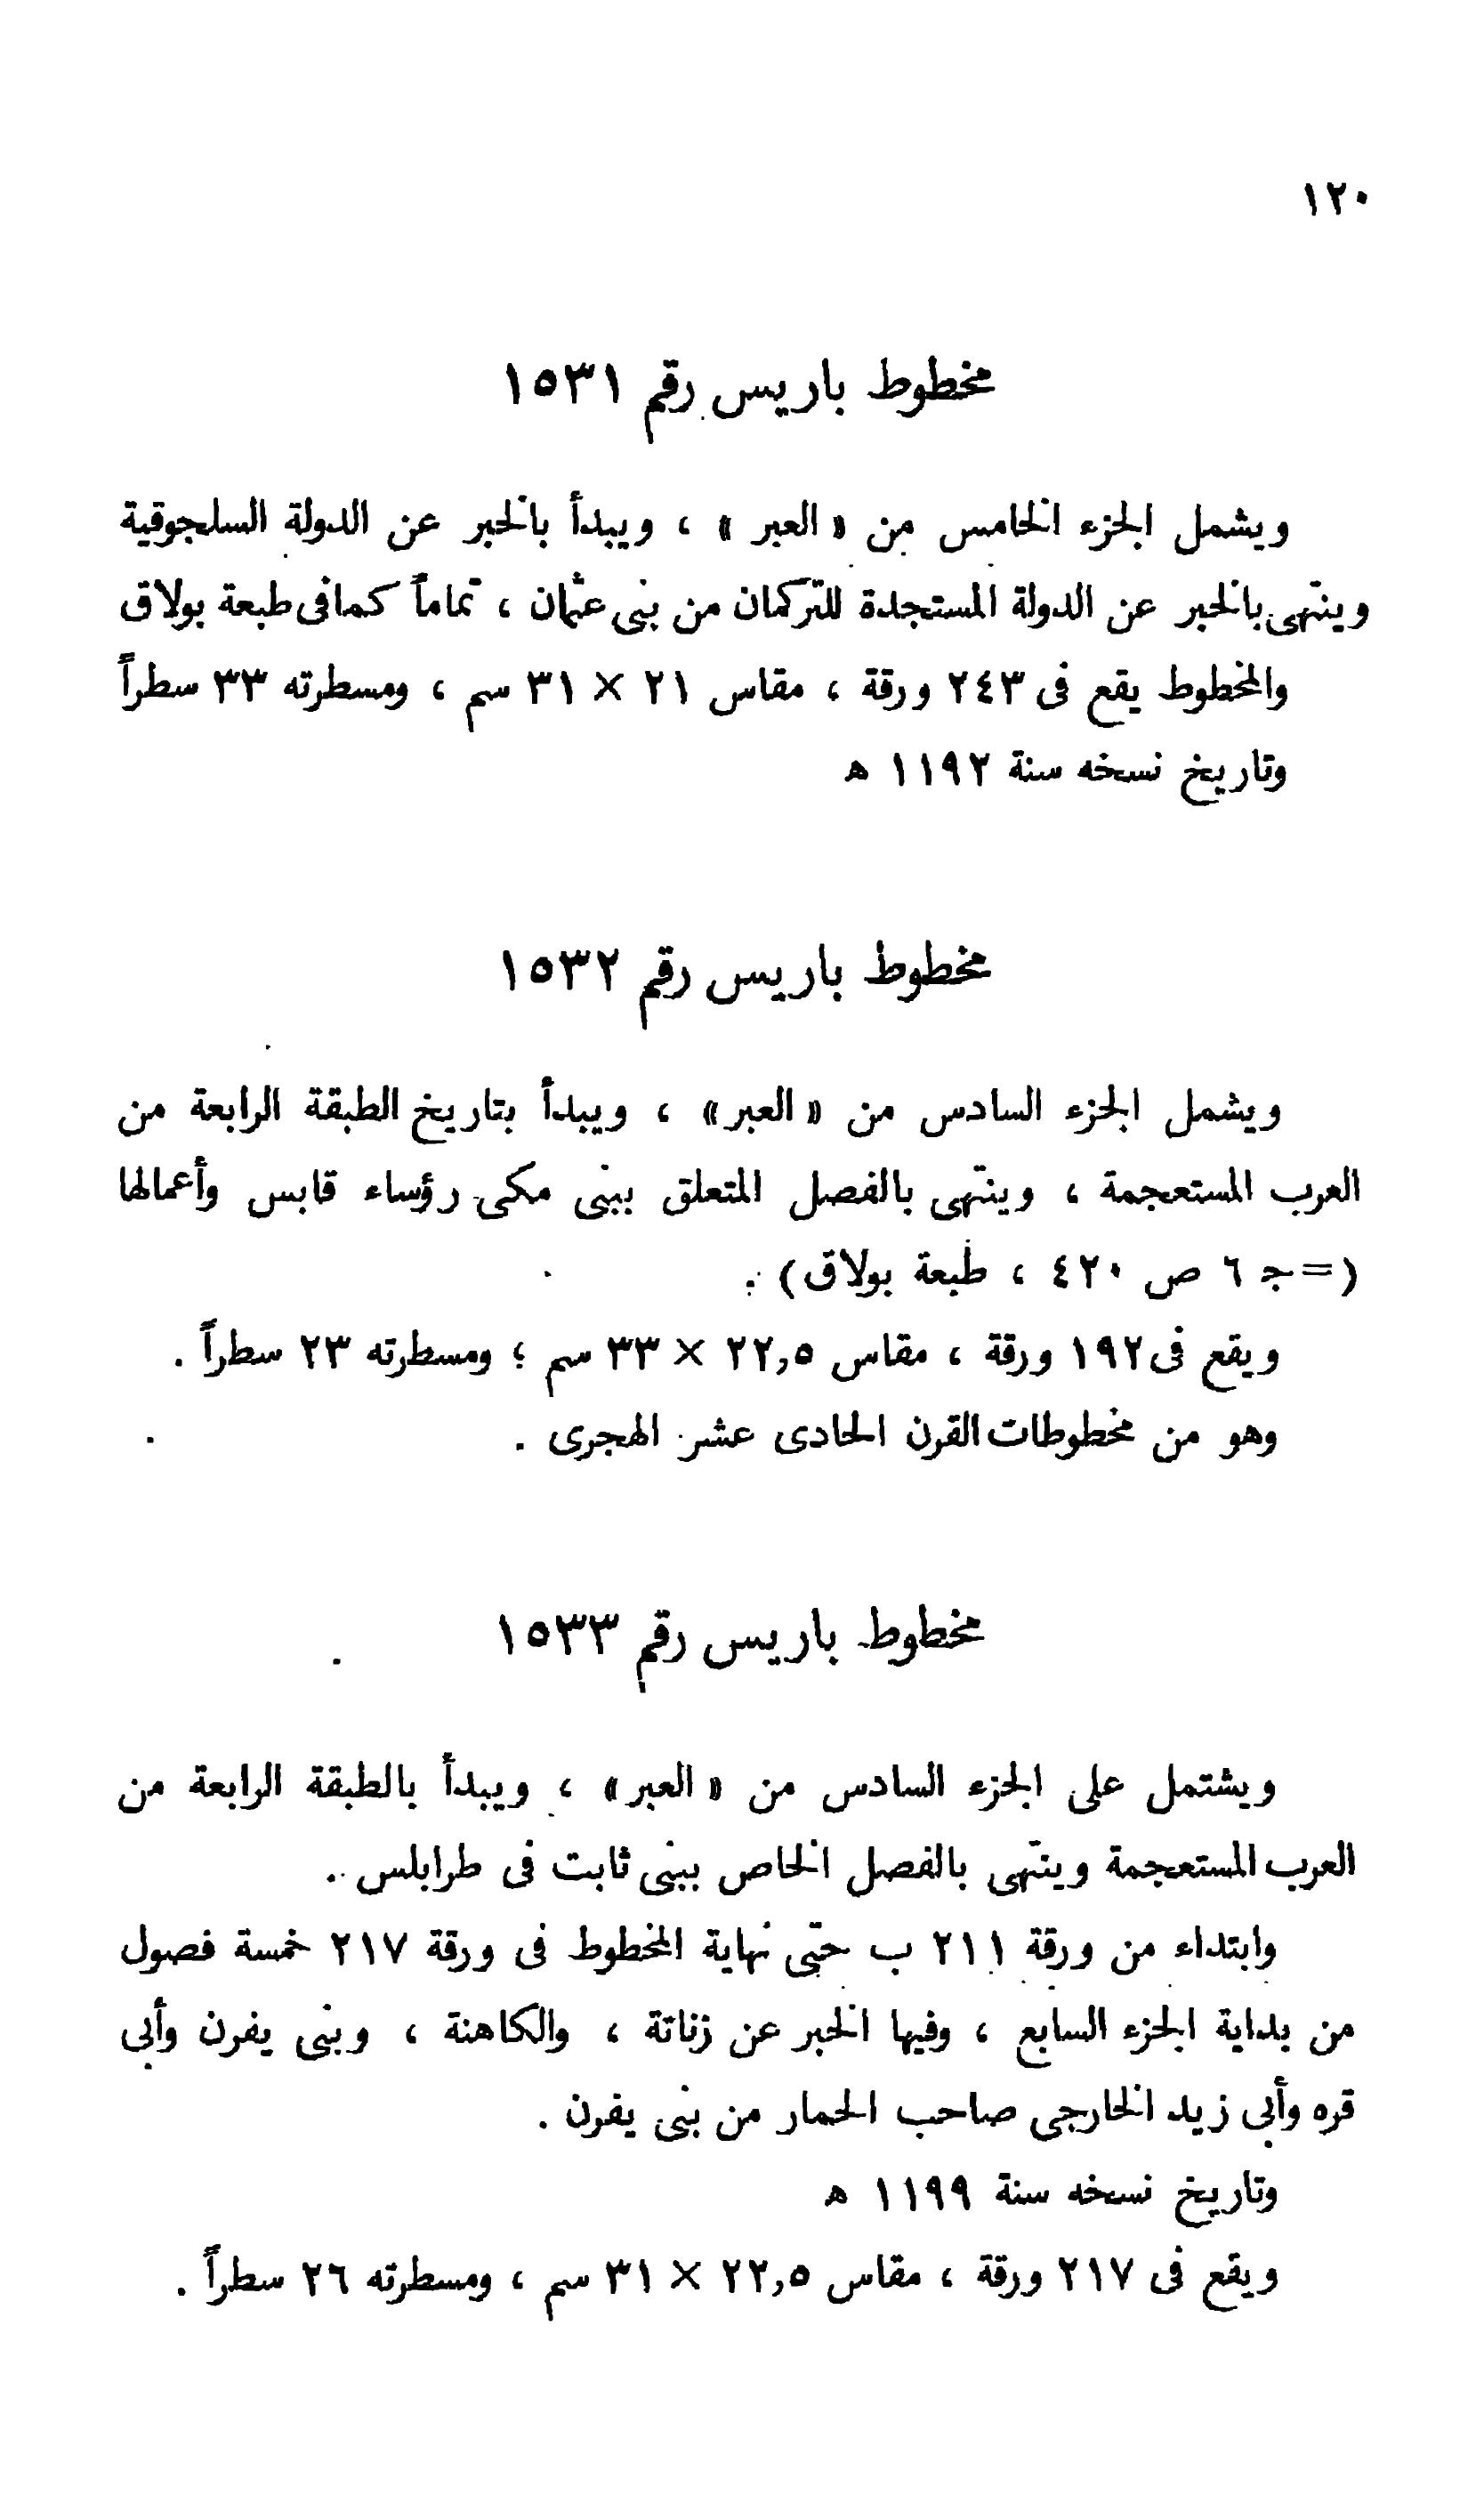 ١٢٠
مخطوط باريس رقم ١٥٣١
ويشمل الجزء الخامس من « العبر » ، ويبدأ بالخبر عن الدولة السلجوقية
وينتهى بالخبر عن الدولة المستجدة للتركمان من بنى عثمان ، تماماً كما فى طبعة بولاق
والمخطوط يقع فى ٢٤٣ ورقة ، مقاس ٢١ × ٣١ سم ، ومسطرته ٣٣ سطراً
وتاريخ نسخه سنة ١١٩٢ ه
مخطوط باريس رقم ١٥٣٢
ويشمل الجزء السادس من « العبر» ، ويبدأ بتاريخ الطبقة الرابعة من
العرب المستعجمة ، وينتهى بالفصل المتعلق ببنى مكى رؤساء قابس وأعمالها
(= ج ٦ ص ٤٢٠ ، طبعة بولاق) .
ويقع فى ١٩٢ ورقة ، مقاس ٢٢,٥ × ٣٣ سم ؛ ومسطرته ٢٣ سطراً .
وهو من مخطوطات القرن الحادى عشر الهجرى .
مخطوط باريس رقم ١٥٣٣
ويشتمل على الجزء السادس من « العبر» ، ويبدأ بالطبقة الرابعة من
العرب المستعجمة وينتهى بالفصل الخاص ببنى ثابت فى طرابلس .
وابتداء من ورقة ٢١١ ب حتى نهاية المخطوط فى ورقة ٢١٧ خمسة فصول
من بداية الجزء السابع ، وفيها الخبر عن زناتة ، والكاهنة ، وبنى يفرن وأبى
قره وأبى زيد الخارجى صاحب الحمار من بنى يفرن .
وتاريخ نسخه سنة ١١٩٩ ه
ويقع فى ٢١٧ ورقة ، مقاس ٢٢,٥ × ٣١ سم ، ومسطرته ٢٦ سطراً .